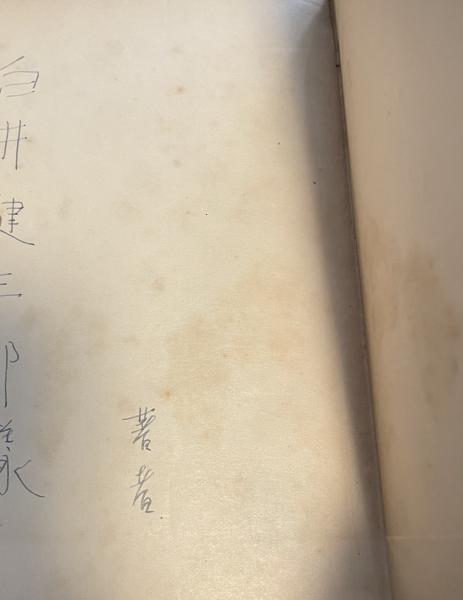 著者
白井健三郎様